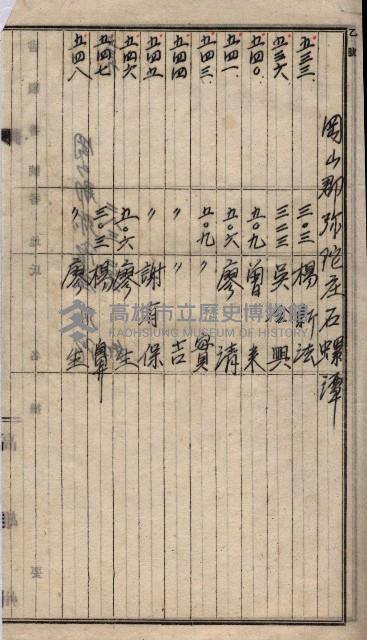 乙號
岡山郡弥陀庄石螺潭
五三三 三〇三 楊新法
五三六 三二三 吳 興
五四〇 五〇九 曾 来
五四一 五〇六 廖 清
五四三 五〇九 〃 寶
五四四 〃 〃 吉
五四五 〃 謝有保
五四六 五〇六 廖 生
五四七 三〇三 楊 鼻
五四八 〃 廖 生
高雄市立歷史博物館
KAOHSIUNG MUSEUM OF HISTORY
高雄州